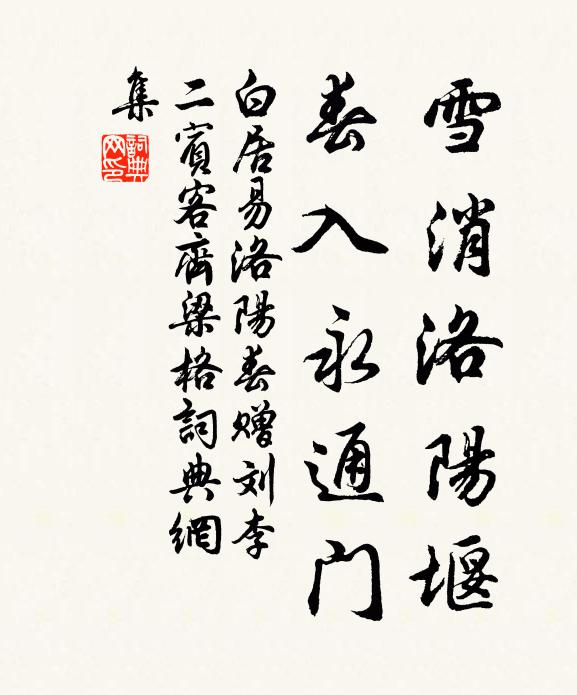 雪消洛陽堰
春入永通门
白居易洛陽春赠刘李
二賓客齊梁格詞典網
集
詞典网印